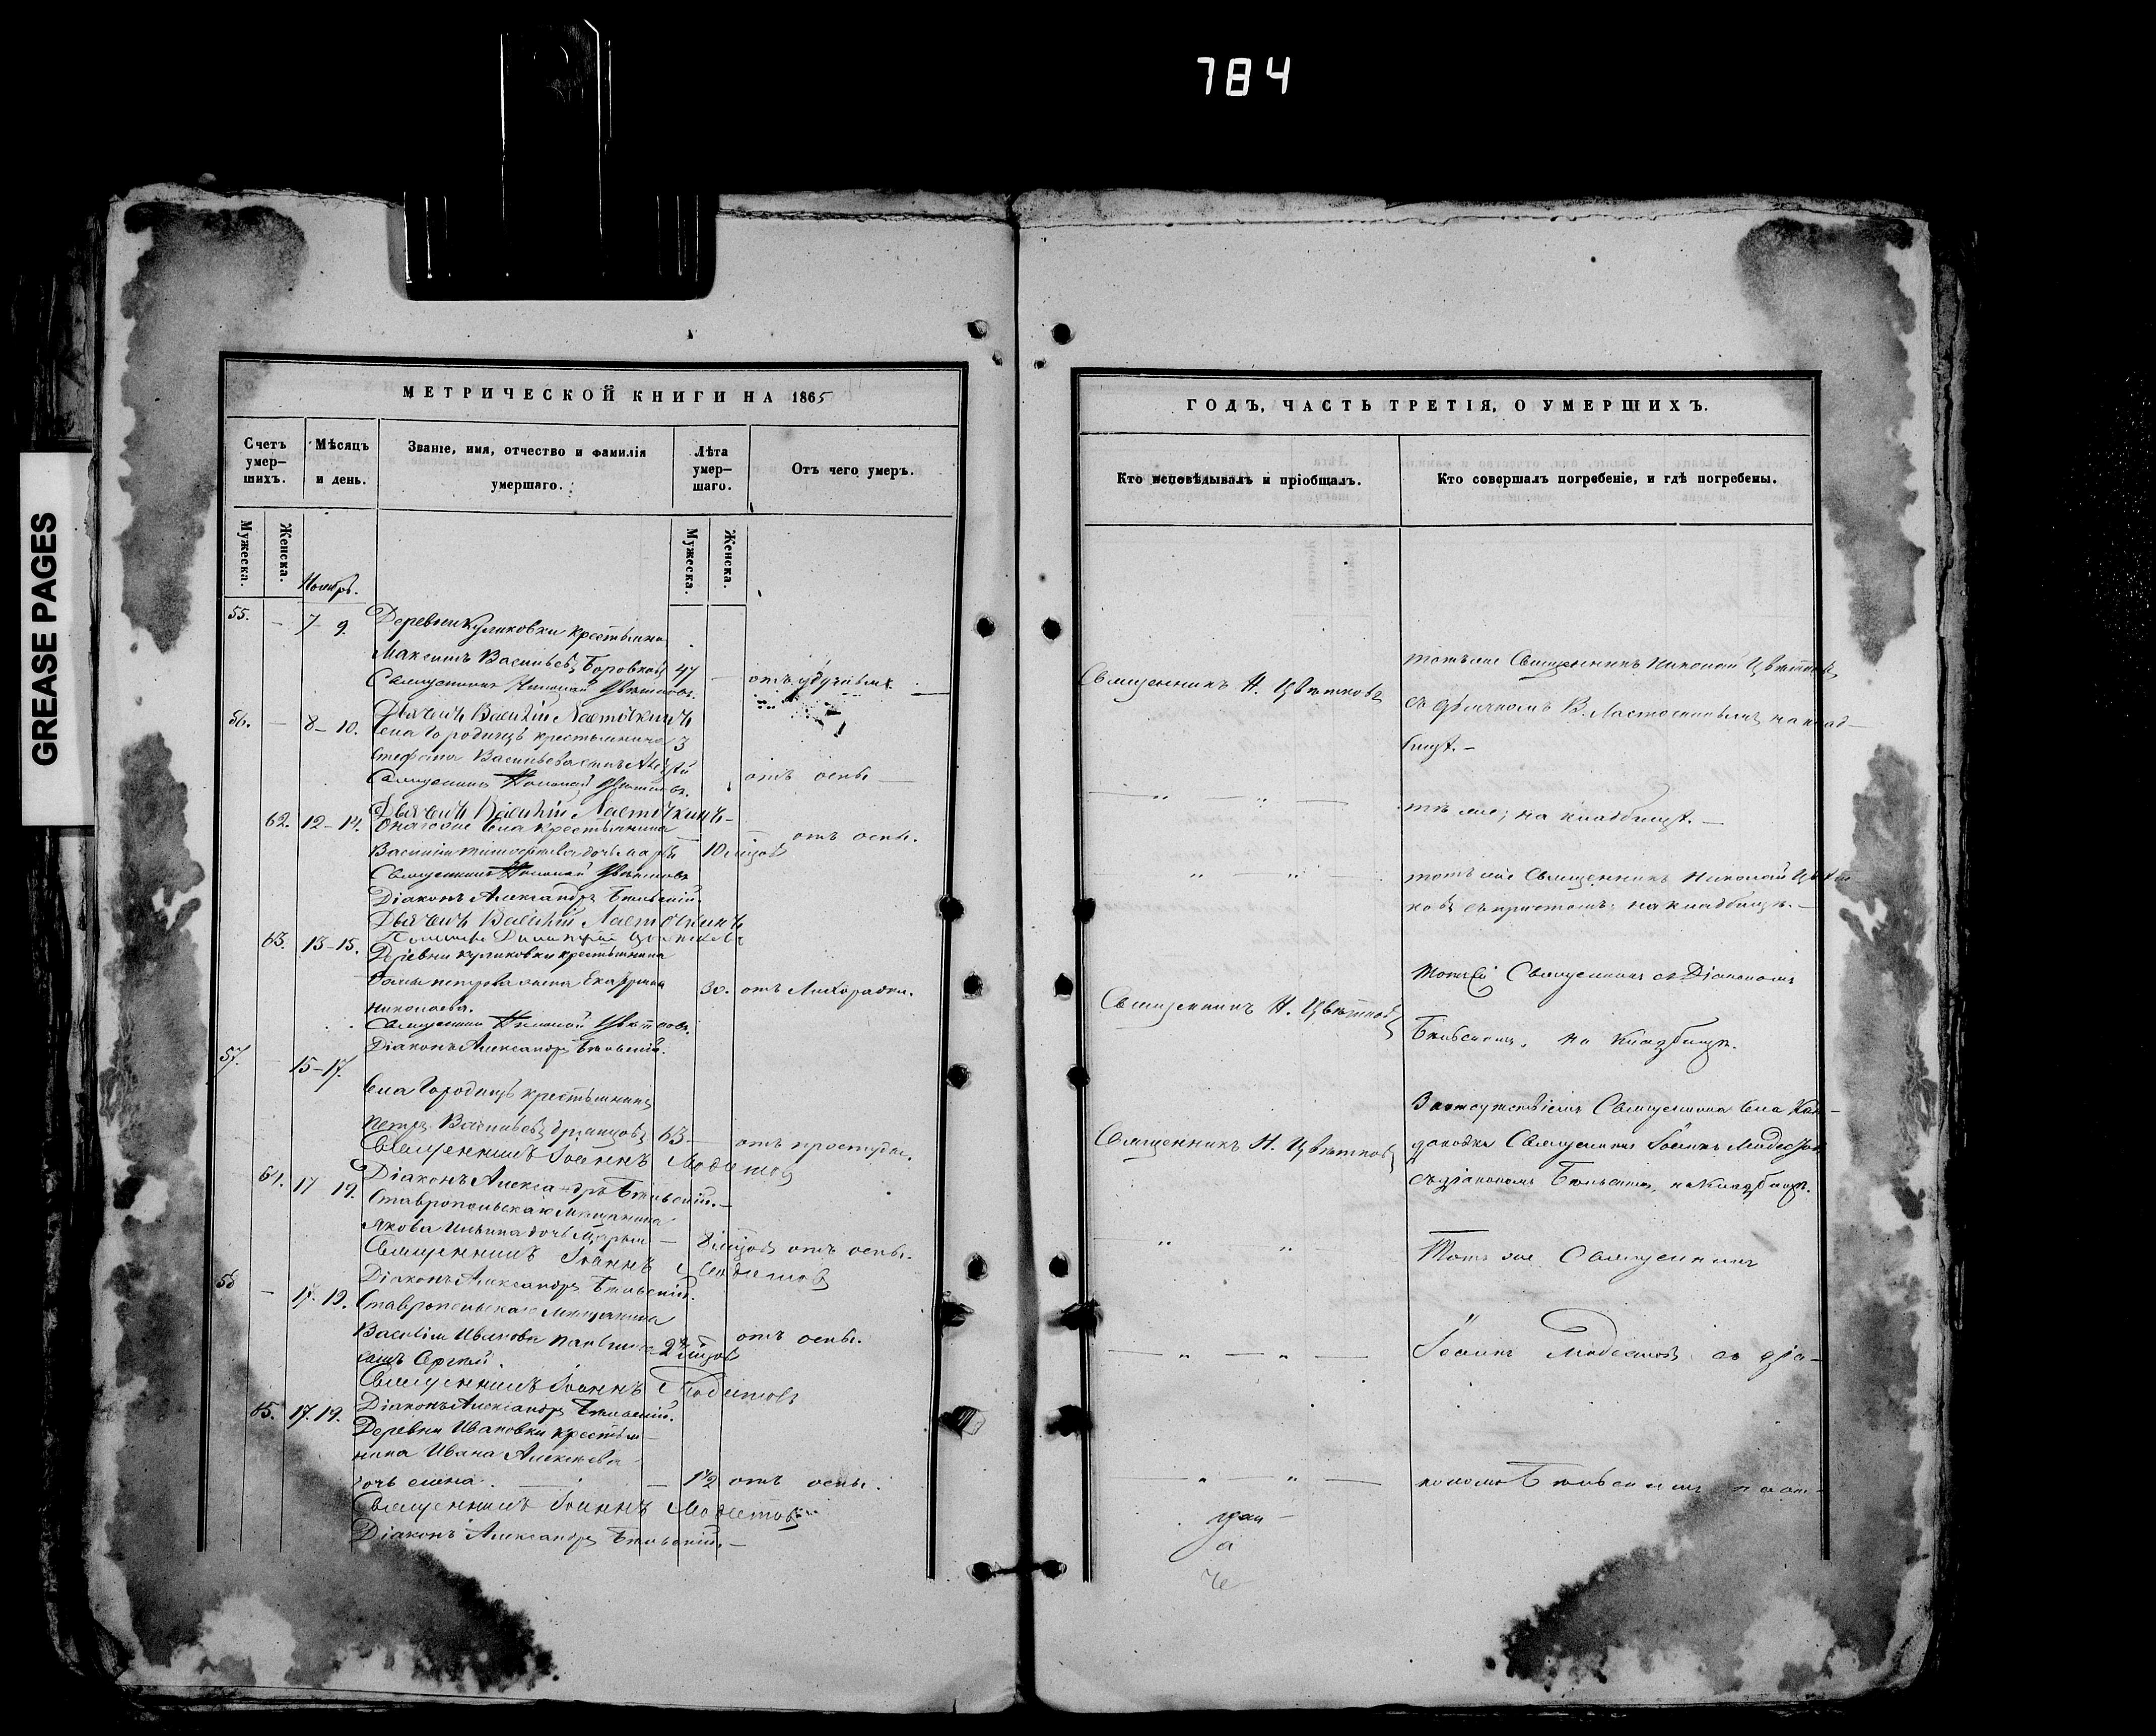 784
GREASE PAGES
МЕТРИЧЕСКОЙ КНИГИ НА 1865
Счетъ умер—шихъ.
Мѣсяцъ и день.
Званіе, имя, отчество и фамилія умершаго.
Лѣта умер—шаго.
Отъ чего умеръ.
Мужеска.
Женска.
Мужеска.
Женска.
Ноябрь.
55. — 7 9. Деревни Куликовки крестьянинъ
Максимъ Васильевъ Боровковъ 47 —
Священникъ Николай Цвѣтковъ.
Дьячекъ Василій Ласточкинъ
56. — 8 — 10. Села Городищъ крестьянина 3
Стефана Васильева сынъ
Священникъ Николай Цвѣтковъ. отъ оспы —
Дьячекъ Василій Ласточкинъ
62. 12 — 14. села крестьянина отъ оспы.
Василія дочь 10 мѣсяцовъ
Священникъ Николай Цвѣтковъ
Діаконъ Александръ Бѣльскій.
Дьячекъ Василій Ласточкинъ
63. 13 — 15. Деревни Куликовки крестьянина
Петрова жена 30. отъ лихорадки.
Николаева.
Священникъ Николай Цвѣтковъ.
Діаконъ Александръ Бѣльскій.
57. 15 — 17.
Села Городищъ крестьянинъ
Петръ Васильевъ 63 — отъ простуды.
Священникъ Іоаннъ Модестовъ
Діаконъ Александръ Бѣльскій. —
64. 17 19. Ставропольскаго мѣщанина
Якова Ильина дочь Марья — 8 мѣсяцовъ отъ оспы.
Священникъ Іоаннъ Модестовъ
Діаконъ Александръ Бѣльскій.
58 — 17. 19. Ставропольскаго мѣщанина
Василія Иванова отъ оспы.
сынъ Сергѣй. 2 мѣсяцовъ
Священникъ Іоаннъ Модестовъ
Діаконъ Александръ Бѣльскій.
65. 17. 19. Деревни Ивановки крестья—
нина Ивана Алексѣева
дочь — 1 1/2 отъ оспы.
Священникъ Іоаннъ Модестовъ
Діаконъ Александръ Бѣльскій. —
ГОДЪ, ЧАСТЬ ТРЕТІЯ, О УМЕРШИХЪ.
Кто исповѣдывалъ и пріобщалъ.
Кто совершалъ погребеніе, и гдѣ погребены.
Священникъ Н. Цвѣтковъ
тотъ же Священникъ Николай Цвѣтковъ
съ дьячкомъ В. Ласточкинымъ на клад—
бищѣ. —
— „ — „ —
тѣ же; на кладбищѣ. —
„ — „ —
тотъ же Священникъ Николай Цвѣт
ковъ съ причтомъ; на кладбищѣ. —
Священникъ Н. Цвѣтковъ
Священникъ съ Діакономъ
Бѣльскимъ, на кладбищѣ.
Священникъ Н. Цвѣтковъ
За отсутствіемъ Священника села
Священникъ Іоаннъ Модестовъ
съ діакономъ Бѣльскимъ, на кладбищѣ.
„ „
Тотъ же Священникъ
— „ — „ —
Іоаннъ Модестовъ съ діа—
— „ — „ —
кономъ Бѣльскимъ
а